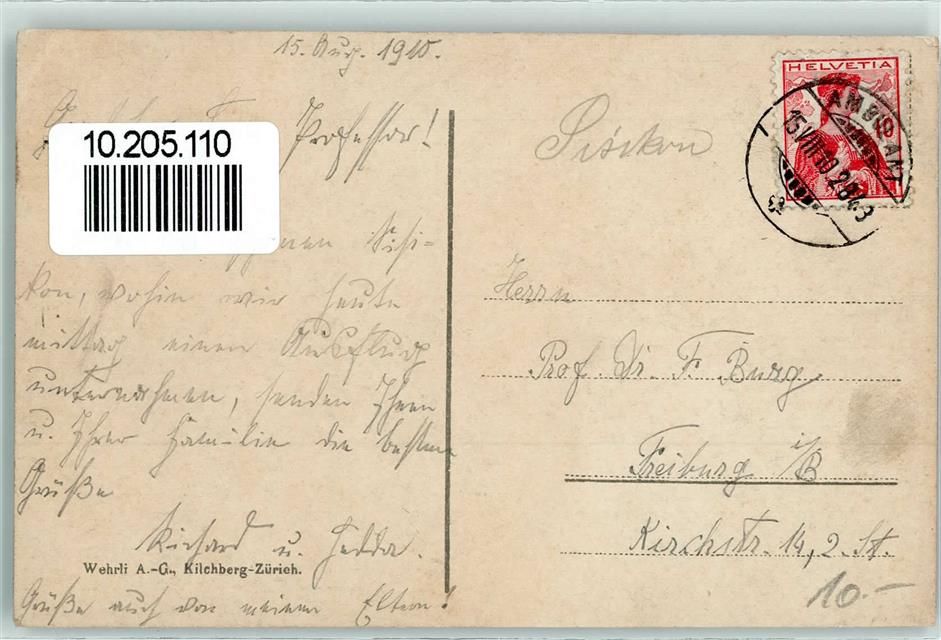 15. Aug. 1910.
Professor!
10.205.110
Sisi-
kon, wohin wir heute
mittag einen Ausflug
unternahmen, senden Ihnen
u. Ihrer Familie die besten
Grüße
Richard u. Hedda.
Wehrli A.-G., Kilchberg-Zürich.
Grüße auch von meinen Eltern!
HELVETIA
10
AMBULANT
Sisikon
Herrn
Prof. Dr. F. Burg
Freiburg i/B
Kirchstr. 14, 2. St.
10.-